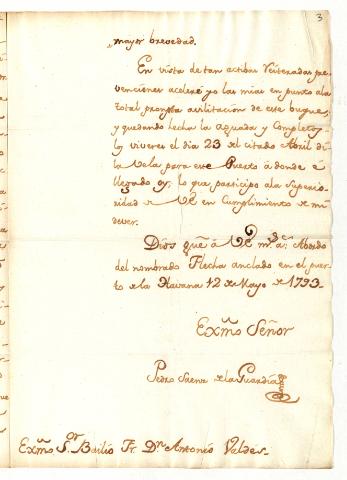 3
mayor brevedad.
En vista de tan actibas reiteradas pre-
venciones aceleré yo las mias en punto a la
total prompta avilitacion de este buque,
y quedando hecha la aguada y completos
los viveres el dia 23 del citado Abril dí
la vela para este Puerto á donde é
llegado oy; lo que participo ala Superio-
ridad de VE en cumplimiento de mi
dever.
Dios gue á VE ms as Abordo
del nombrado Flecha anclado en el puer-
to de la Havana 12 de Mayo de 1793.
Exmo Señor
Pedro Saenz de la Guardia
Exmo Sor Bailio Fr. Dn Antonio Valdés.